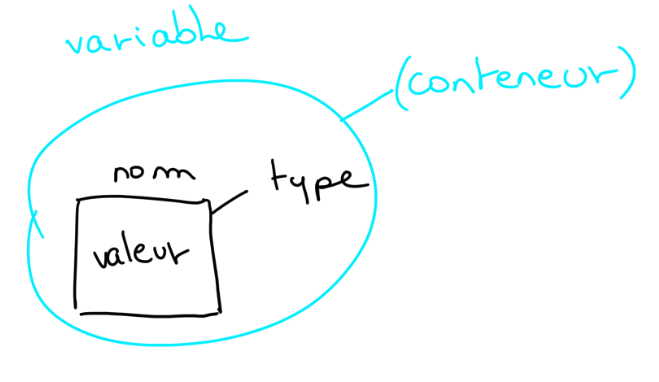 variable
(conteneur)
nom
type
valeur